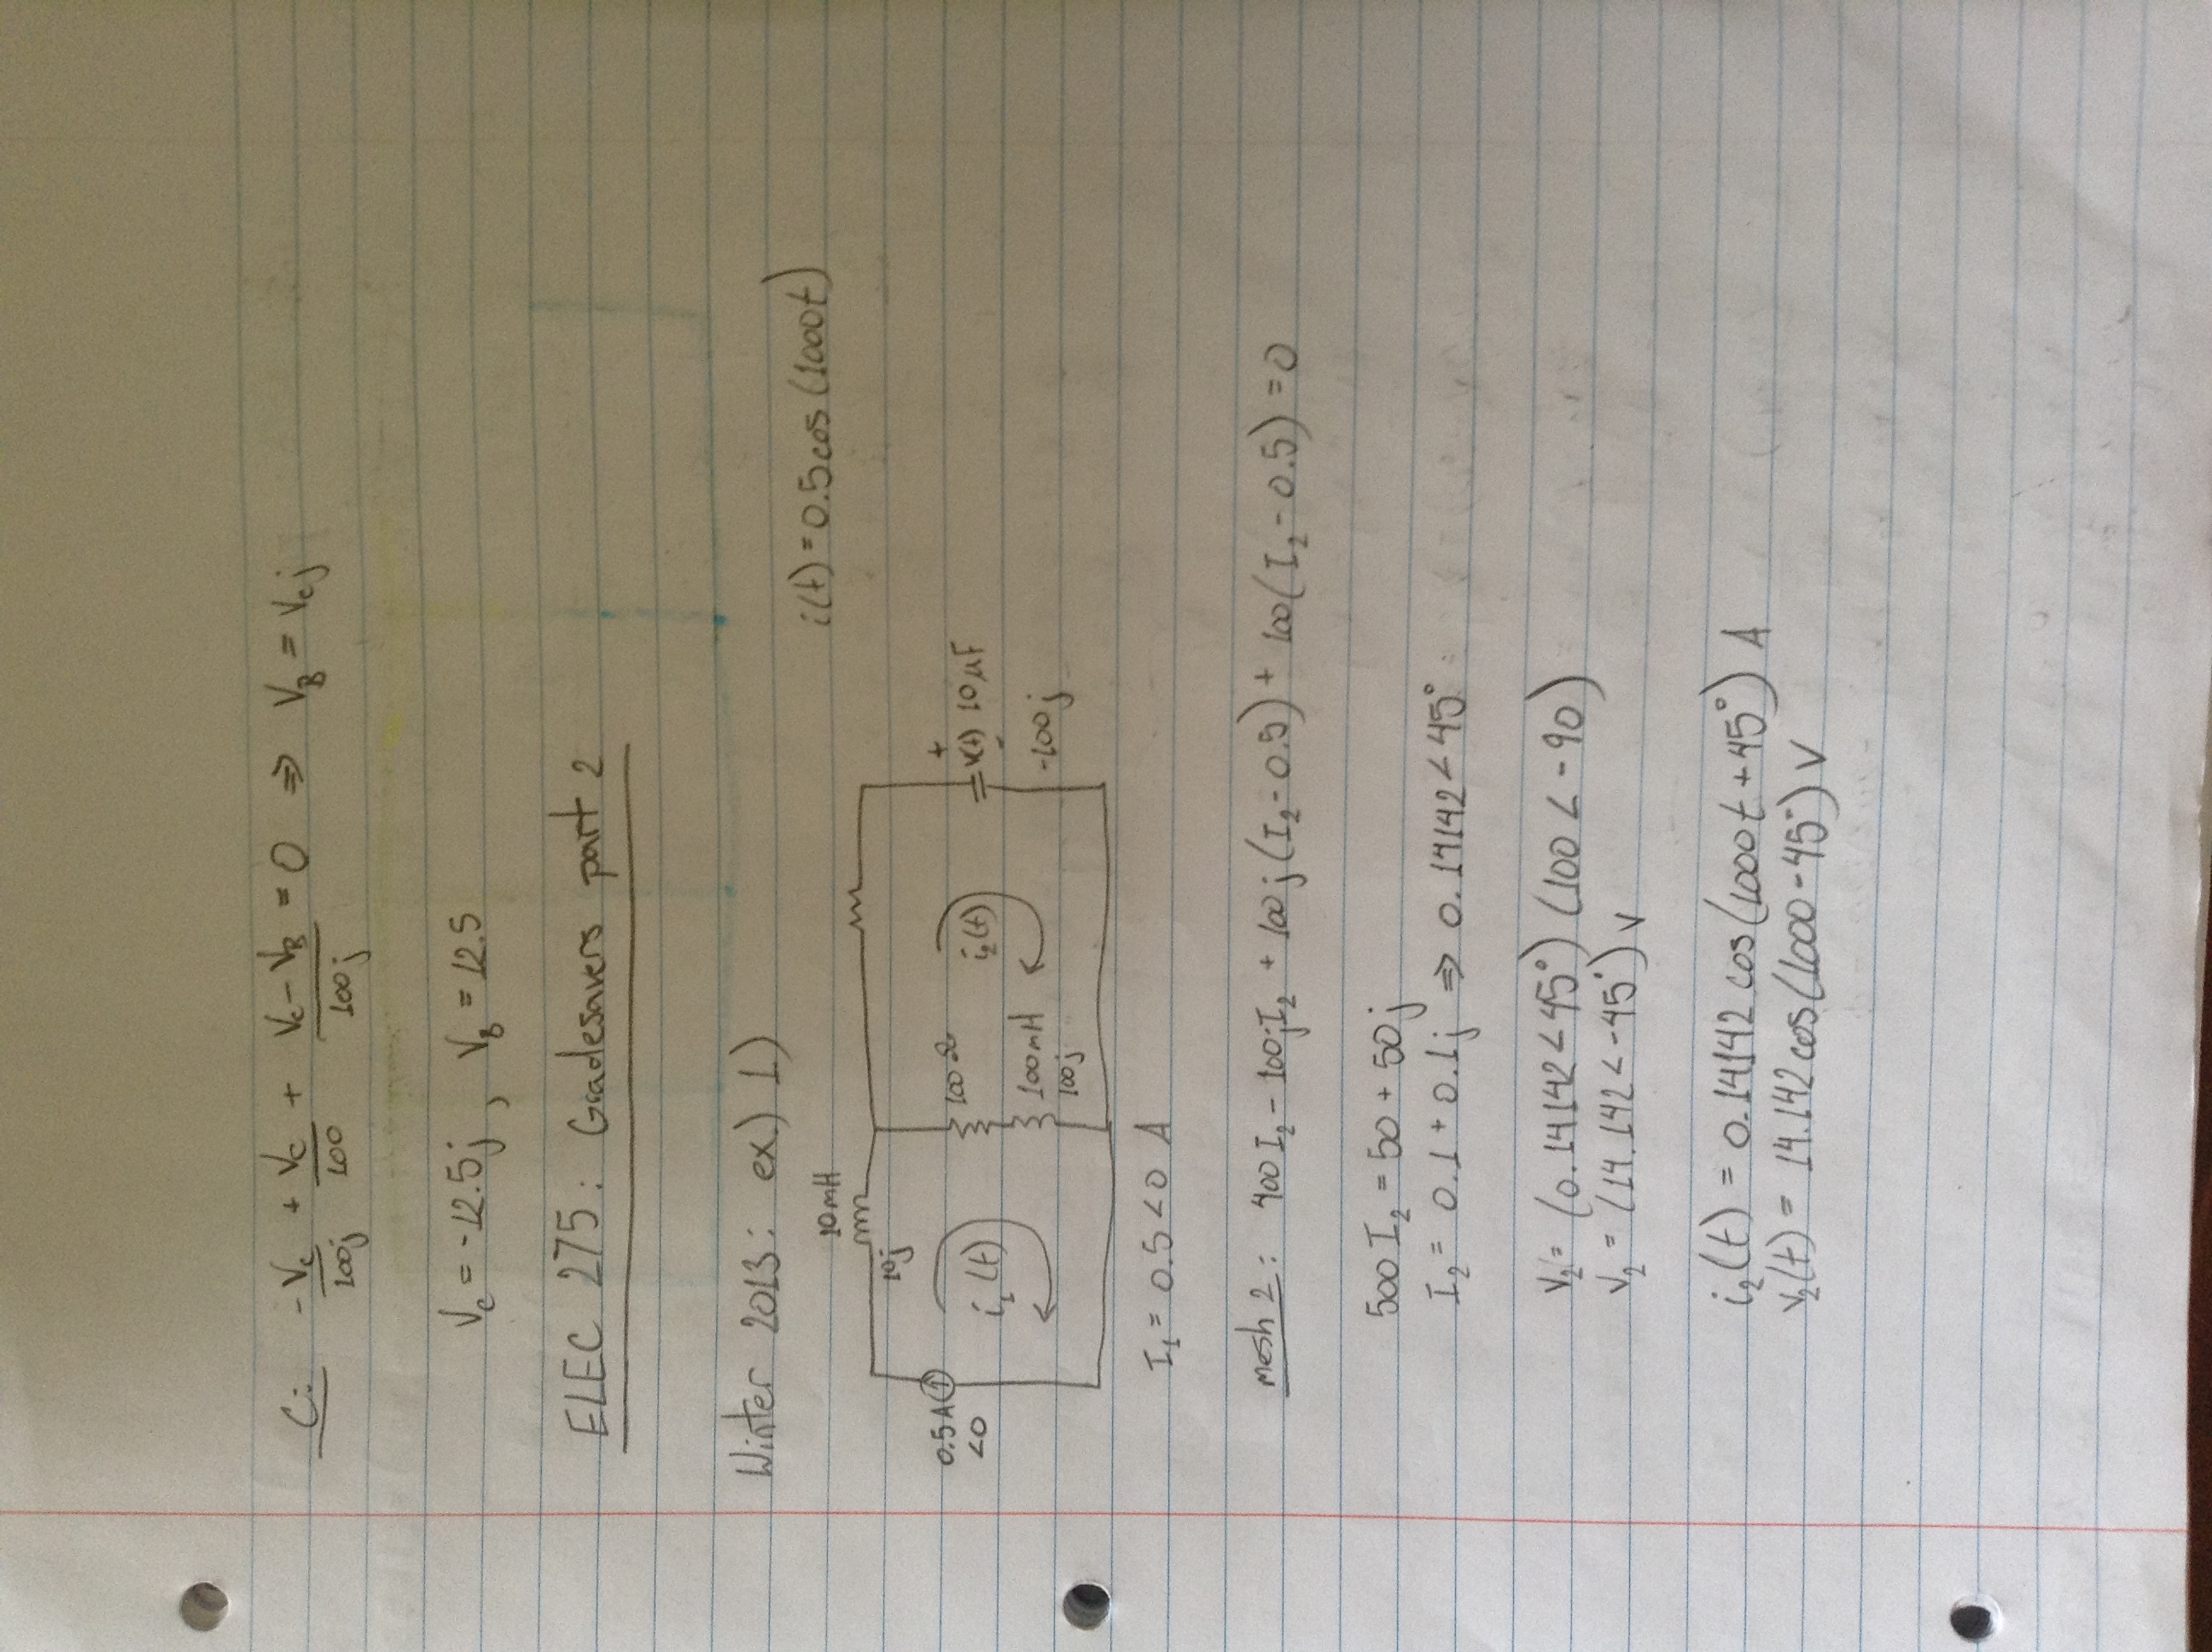 C: -Vc/100j + Vc/100 + Vc-VB/100j = 0 ⇒ VB = Vcj
Vc = -12.5j, VB = 12.5
ELEC 275: Gradesavers part 2
Winter 2013: ex.) 1)
i(t) = 0.5cos(1000t)
10mH
10j
0.5A
<0
i₁(t)
100Ω
100mH
100j
i₂(t)
+
v(t) 10μF
-
-100j
I₁ = 0.5<0 A
mesh 2: 400I₂ - 100jI₂ + 100j(I₂-0.5) + 100(I₂-0.5) = 0
500I₂ = 50 + 50j
I₂ = 0.1 + 0.1j ⇒ 0.14142<45°
V₂ = (0.14142<45°)(100<-90)
V₂ = (14.142<-45°)V
i₂(t) = 0.14142 cos(1000t+45°) A
v₂(t) = 14.142cos(1000-45°) V